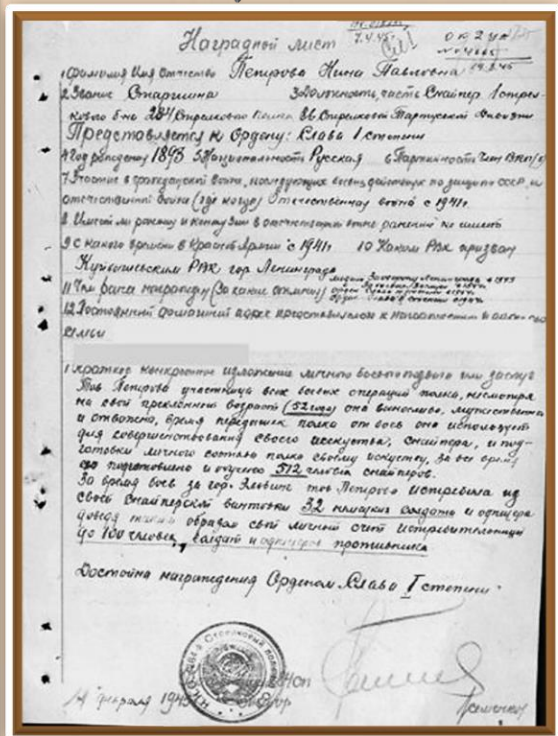 7.4.45
Наградной лист
14.3.45
1 Фамилия Имя Отчество Петрова Нина Павловна
2 Звание Старшина 3 Должность, часть Снайпер 1 стрел-
кового б-на 284 Стрелкового полка 86 Стрелковой Тартуской дивизии
Представляется к Ордену: Слава I степени
4 Год рождения 1893 5 Национальность Русская 6 Партийность Член ВКП/б/
7 Участие в гражданской войне, последующих боевых действиях по защите СССР, и
отечественной войне (где когда) Отечественная война с 1941г.
8 Имеет ли ранения и контузии в отечественной войне ранений не имеет
9 С какого времени в Красной Армии с 1941г. 10 Каким РВК призван
Куйбышевским РВК гор Ленинграда
11 Чем ранее награжден (За какие отличия)
12 Постоянный домашний адрес представляемого к награждению и адрес его
семьи
краткое конкретное изложение личного боевого подвига или заслуг
Тов Петрова участница всех боевых операций полка, несмотря
на свой преклонный возраст (52 года) она вынослива, мужественна
и отважна, время передышек полка от боев она использует
для совершенствования своего искусства, снайпера, и под-
готовки личного состава полка своему искусству, за все время
подготовлено и обучено 512 человек снайперов.
За время боев за гор. Эльбинг тов Петрова истребила из
своей снайперской винтовки 32 немецких солдата и офицера
доведя таким образом свой личный счет истребительницы
до 100 человек, солдат и офицеров противника
Достойна награждения Орденом Слава I степени
февраля 1945